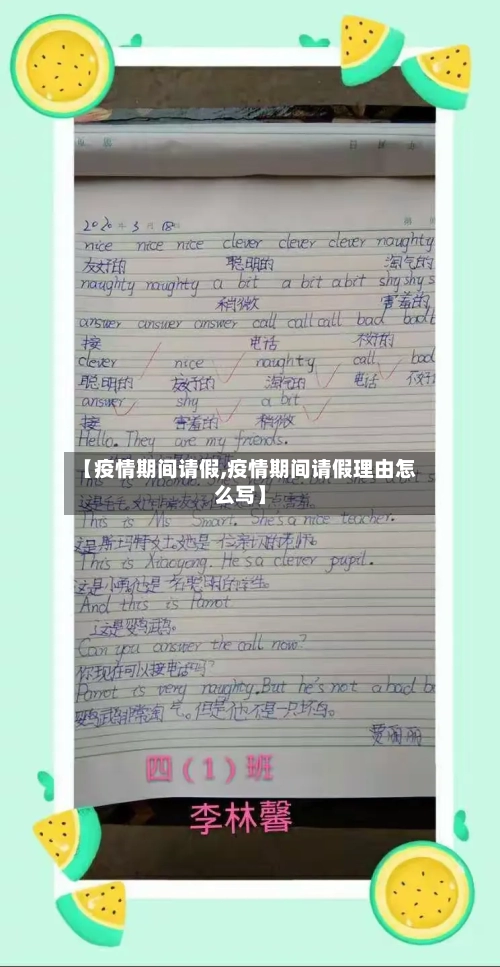 2020年3月18
nice nice nice clever clever clever naughty
友好的 聪明的 淘气的
naughty naughty a bit a bit a bit shy shy s
稍微 害羞的
answer answer answer call call call bad bad b
接 电话 不好的
clever nice naughty call bad
聪明的 友好的 淘气的 电话 不好
answer shy a bit
接 害羞的 稍微
Hello. They are my friends.
【疫情期间请假,疫情期间请假理由怎
么写】
This is Ms Smart. She's a nice teacher.
这是斯玛特女士。她是一位亲切的老师。
This is Xiaoyong. He's a clever pupil.
这是小勇。他是一名聪明的学生。
And this is Parrot.
这是鹦鹉。
Can you answer the call now?
你现在可以接电话吗?
Parrot is very naughty. But he's not a bad b
鹦鹉非常淘气。但是他不是一只坏鸟。
四(1)班
李林馨